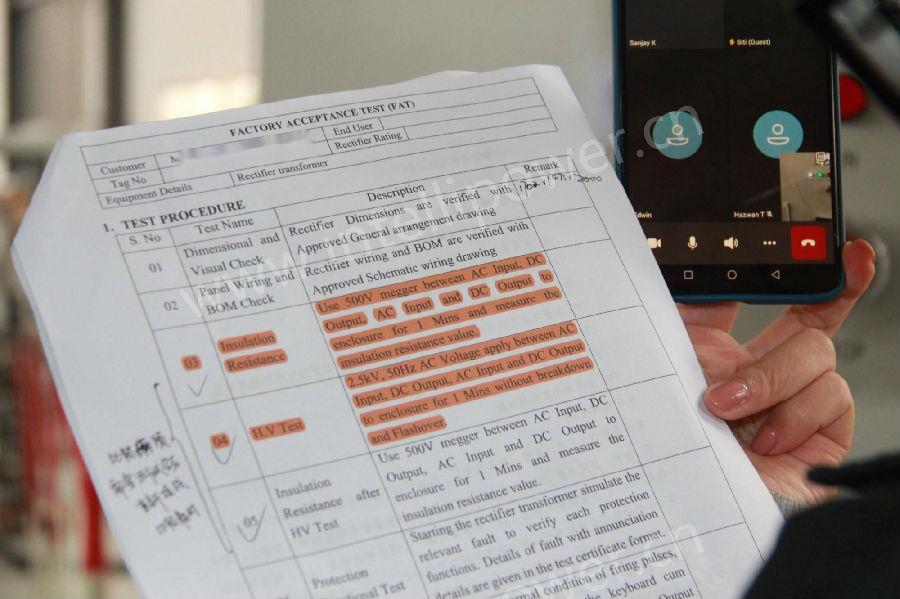 FACTORY ACCEPTANCE TEST (FAT)
Customer
End User
Tag No
Rectifier Rating
Equipment Details
Rectifier transformer
1. TEST PROCEDURE
S. No
Test Name
Description
Remark
01
Dimensional and
Visual Check
Rectifier Dimensions are verified with
Approved General arrangement drawing
02
Panel Wiring and
BOM Check
Rectifier wiring and BOM are verified with
Approved Schematic wiring drawing
03
Insulation
Resistance
Use 500V megger between AC Input, DC
Output, AC Input and DC Output to
enclosure for 1 Mins and measure the
insulation resistance value.
04
H.V Test
2.5kV, 50Hz AC Voltage apply between AC
Input, DC Output, AC Input and DC Output
to enclosure for 1 Mins without breakdown
and Flashover.
05
Insulation
Resistance after
HV Test
Use 500V megger between AC Input, DC
Output, AC Input and DC Output to
enclosure for 1 Mins and measure the
insulation resistance value.
Protection
Starting the rectifier transformer simulate the
relevant fault to verify each protection
functions. Details of fault with annunciation
details are given in the test certificate format.
condition of firing pulses,
the keyboard cum
Output
Sanjay K
Siti (Guest)
Edwin
Hazwan T